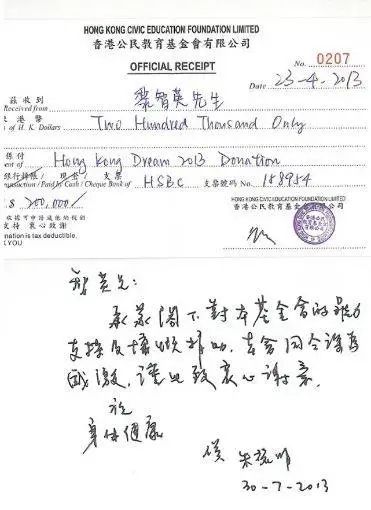 HONG KONG CIVIC EDUCATION FOUNDATION LIMITED
香港公民教育基金會有限公司
OFFICIAL RECEIPT
No. 0207
Date 23-4-2013
茲收到 黎智英先生
Received from
港幣 Two Hundred Thousand Only
of H.K. Dollars
係付 Hong Kong Dream 2013 Donation
ent of
銀行轉賬 / 現金 / 支票 HSBC 支票號碼 No. 188954
Paid by Cash / Cheque Bank of
$ 200,000/
HONG KONG CIVIC EDUCATION FOUNDATION LIMITED
香港公民教育基金會有限公司
收據可申請減免稅銷
支持 衷心致謝
nation is tax deductible.
K YOU
智英兄:
承蒙閣下對本基金會的鼎力
支持及慷慨捐助,本會同仁深為
感激,謹此致衷心謝意。
祝
身体健康
朱耀明
30-7-2013